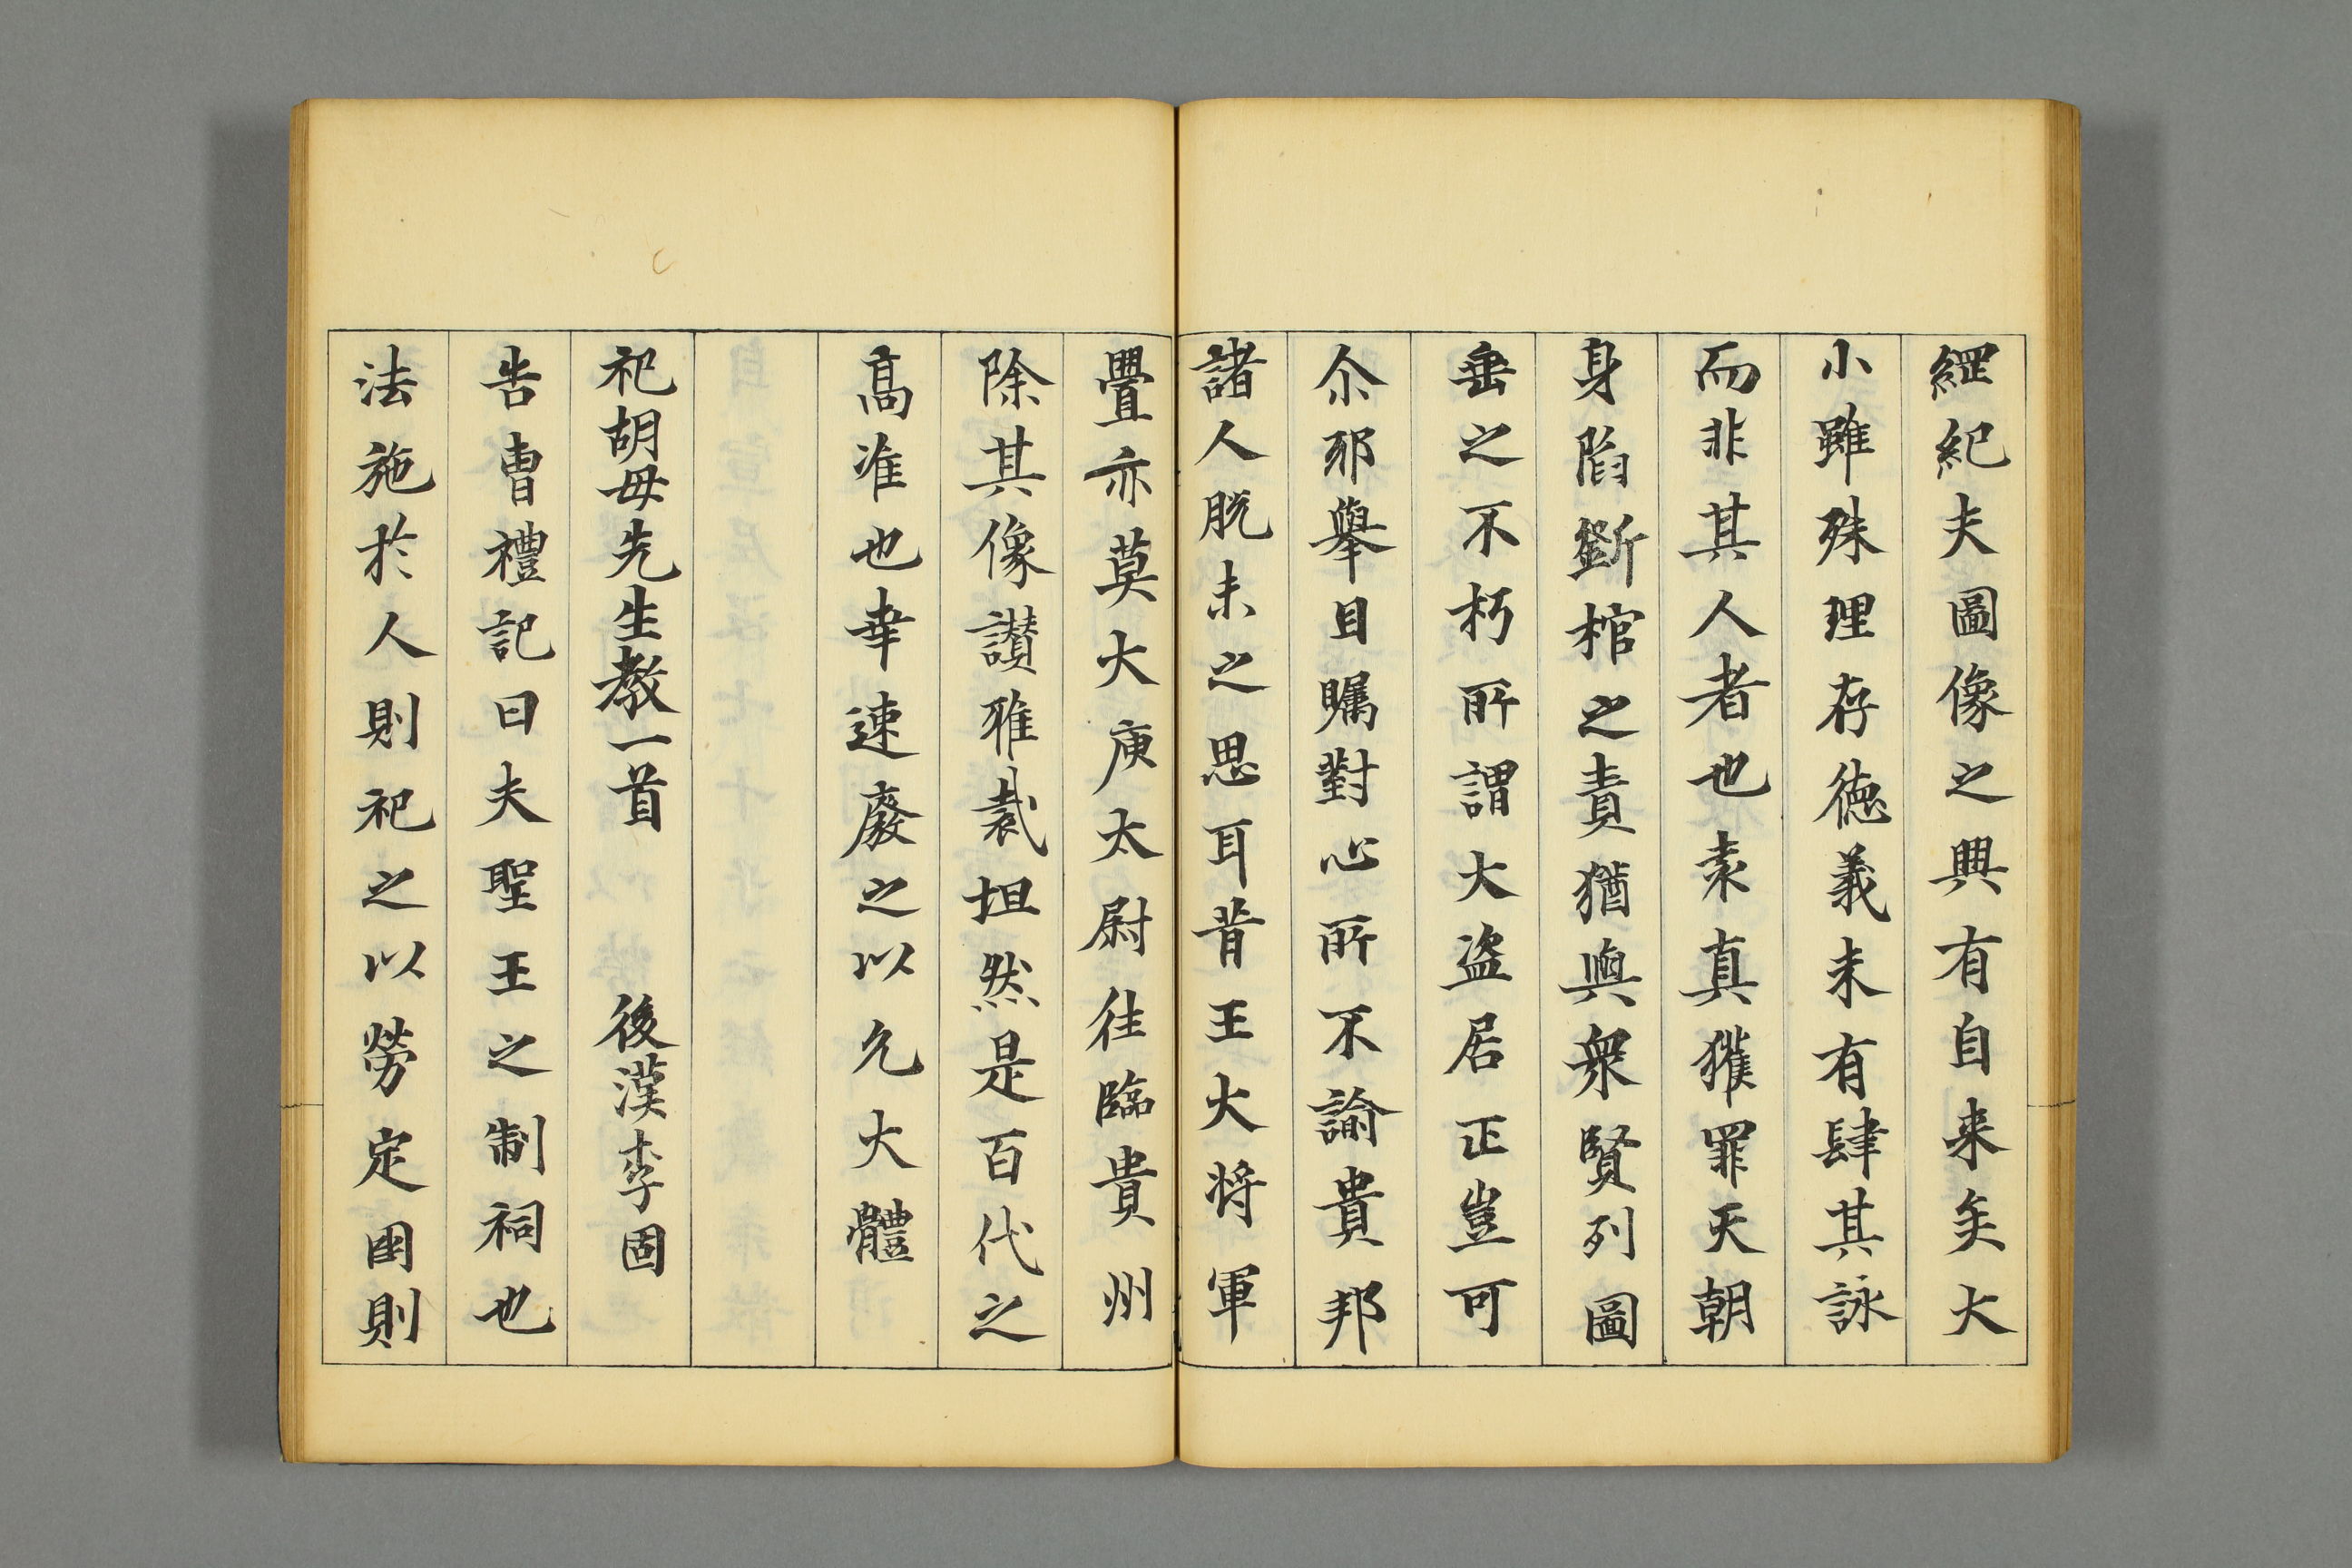 綱紀夫圖像之興有自来矣大
小雖殊理存德義未有肆其詠
而非其人者也袁真獾罪天朝
身陷斵棺之責猶與衆賢列圖
垂之不朽所謂大盜居正豈可
尒邪舉目矚對心所不諭貴邦
諸人脫未之思耳昔王大將軍
舋亦莫大庾太尉往臨貴州
除其像讃雅裁坦然是百代之
髙准也幸速廢之以允大體
祀胡母先生教一首 後漢李固
告曹禮記曰夫聖王之制祠也
法施於人則祀之以勞定国則